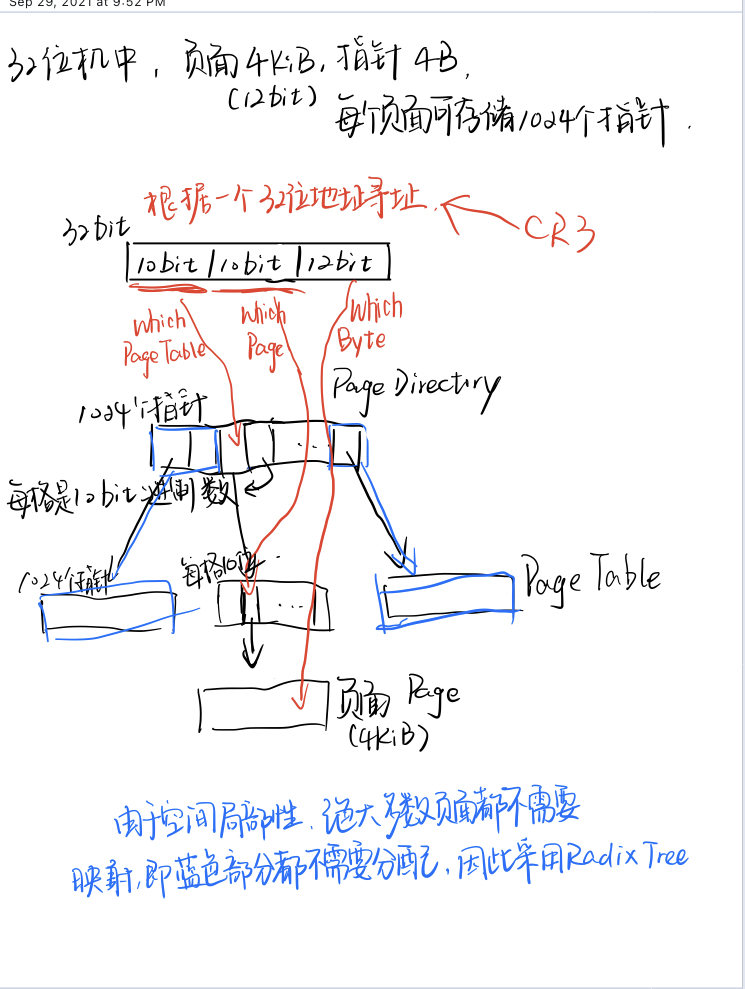 Sep 29, 2021 at 9:52 PM
32位机中，页面4KiB，指针4B，
(12bit)
每个页面可存储1024个指针．
根据一个32位地址寻址．
CR3
32bit
10bit | 10bit | 12bit
Which
Page Table
Which
Page
Which
Byte
Page Directiry
1024个指针
...
每格是10bit二进制数
1024个指针
每格10位
...
Page Table
页面 Page
(4KiB)
由于空间局部性，绝大多数页面都不需要
映射，即蓝色部分都不需要分配，因此采用Radix Tree